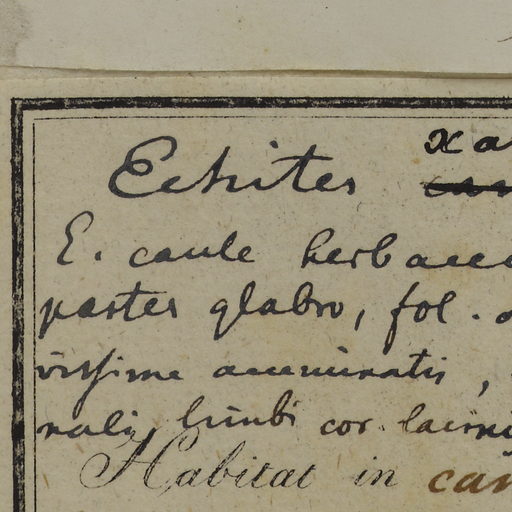 xa
Echites
E. caule herbace
partes glabro, fol.
vissime acuminatis,
nali, limbi cor. lacini
Habitat in cam